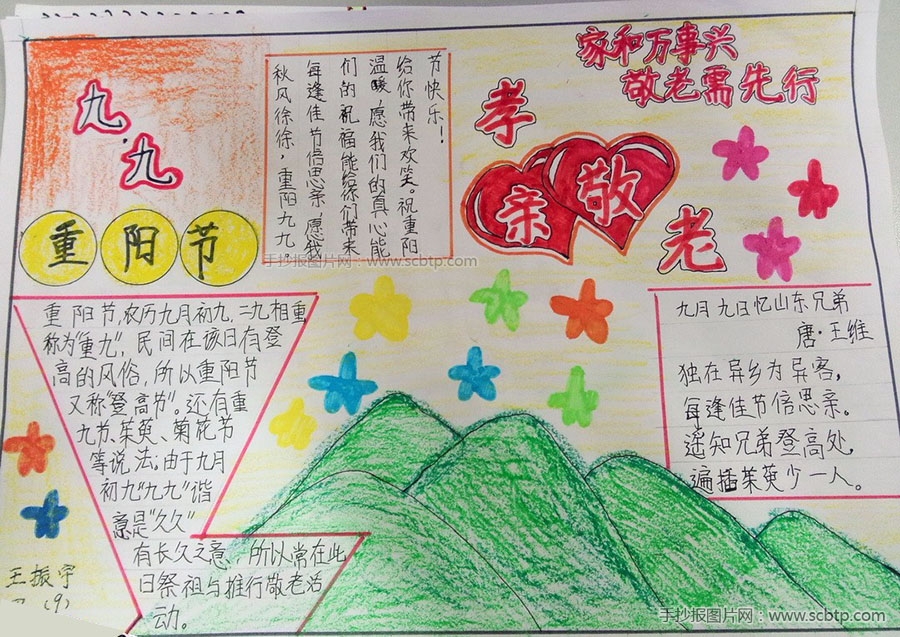 九
九
重阳节
秋风徐徐，重阳九九。
每逢佳节倍思亲，愿我
们的祝福能给你们带来
温暖，愿我们的真心能
给你带来欢笑。祝重阳
节快乐！
家和万事兴
敬老需先行
孝
亲
敬
老
手抄报图片网：www.scbtp.com
重阳节，农历九月初九，二九相重
称为"重九"，民间在该日有登
高的风俗，所以重阳节
又称"登高节"。还有重
九节、茱萸、菊花节
等说法；由于九月
初九"九九"谐
意是"久久"
有长久之意，所以常在此
日祭祖与推行敬老活
动。
九月九日忆山东兄弟
唐·王维
独在异乡为异客，
每逢佳节倍思亲。
遥知兄弟登高处，
遍插茱萸少一人。
王振宇
(9)
手抄报图片网：www.scbtp.com